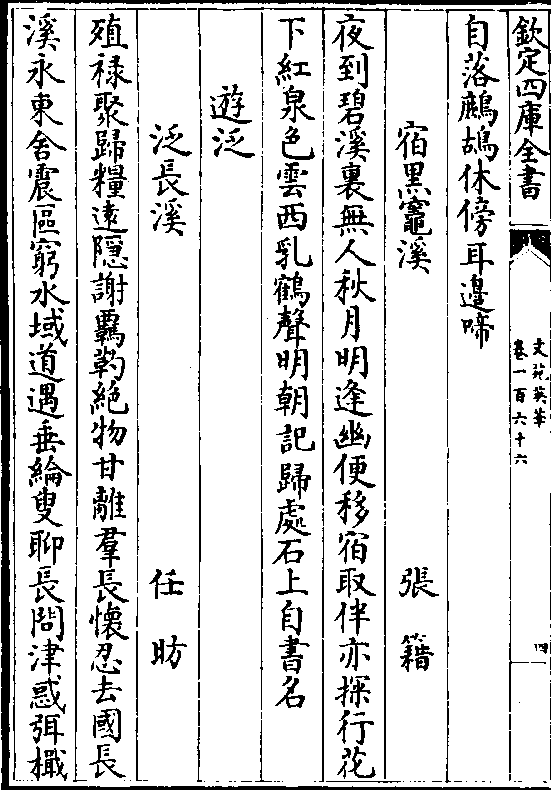 欽定四庫全書
文苑英華
卷一百六十六
四
自落鷓鴣休傍耳邊啼
宿黒竈溪
張籍
夜到碧溪裏無人秋月明逢幽便移宿取伴亦探行花
下紅泉色雲西乳鶴聲明朝記歸處石上自書名
遊泛
泛長溪
任昉
殖禄聚歸糧逺隠謝覊靮絶物甘離羣長懐忍去國長
溪永東舍震區窮水域道遇垂綸叟聊長問津惑弭檝